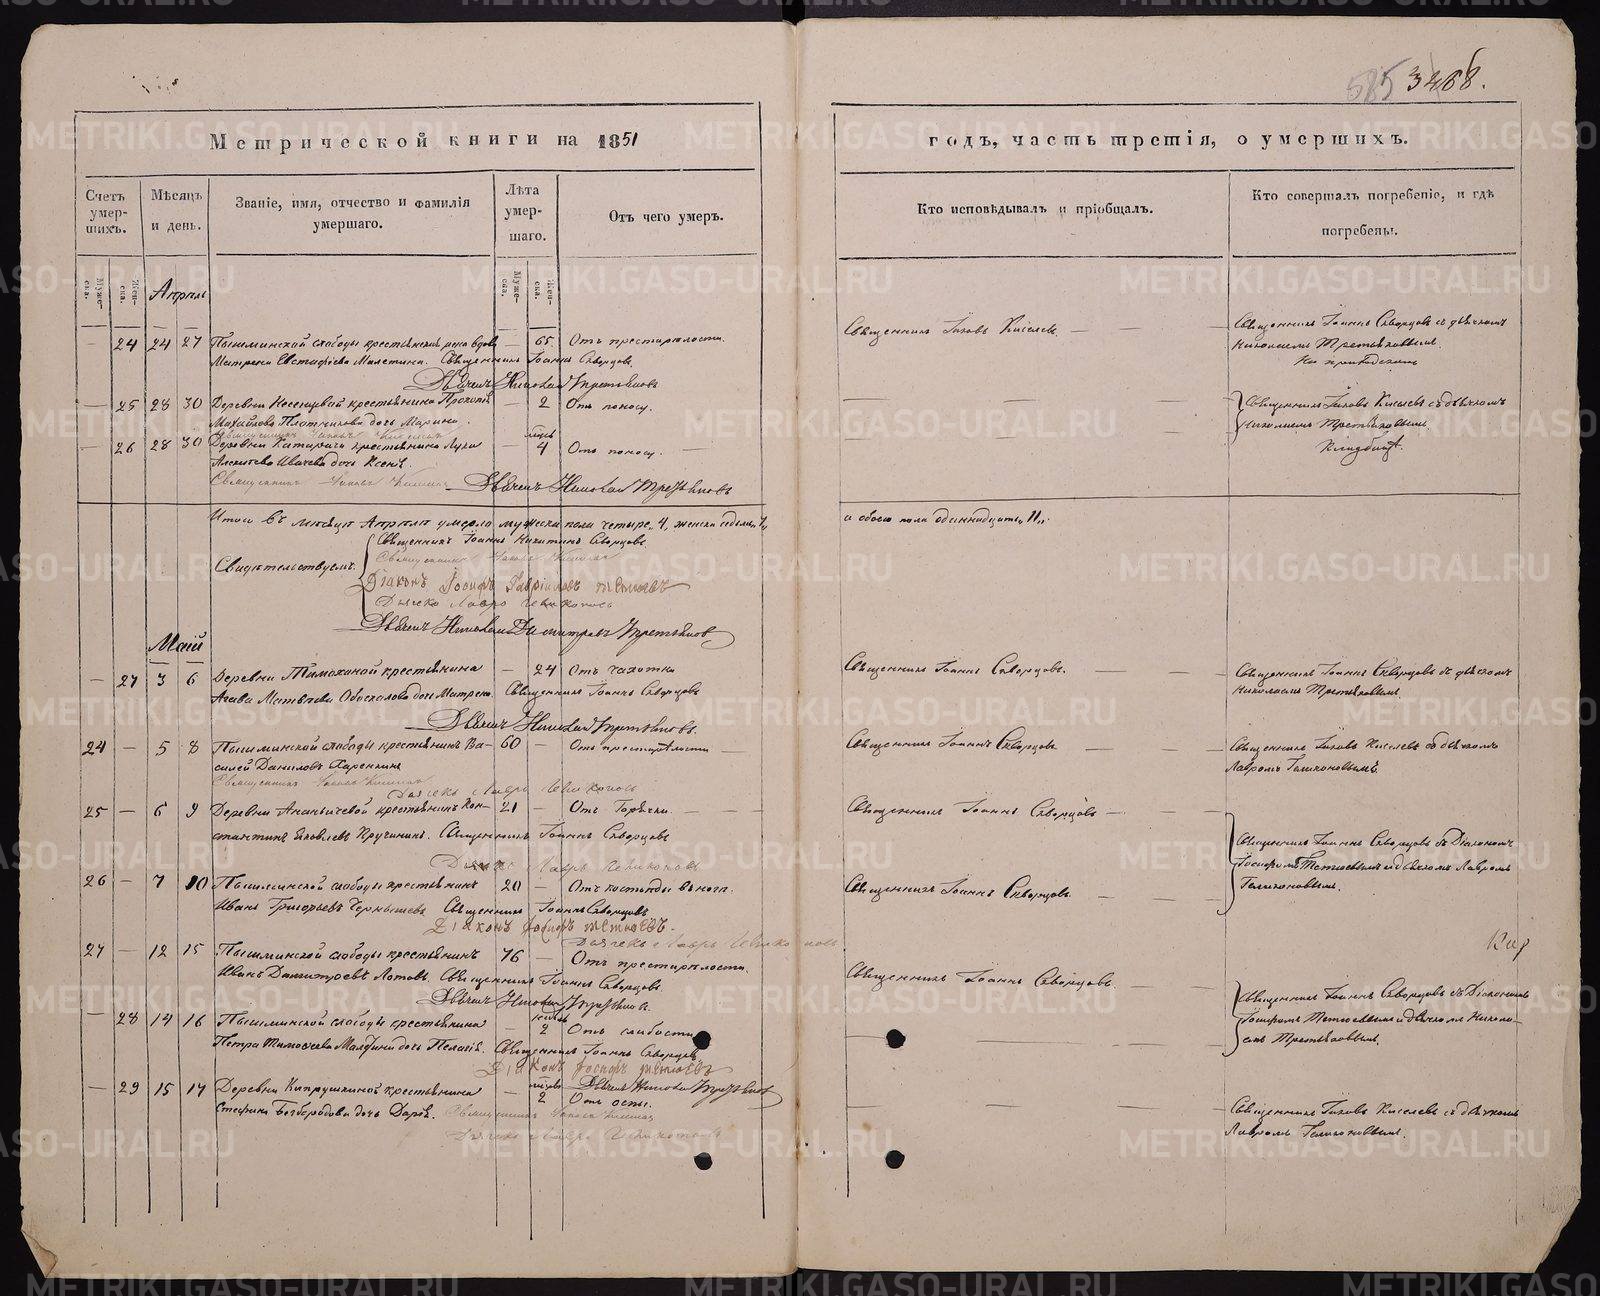 585 3468.
Метрической книги на 1851
годъ, часть третія, о умершихъ.
Счетъ умер-шихъ.
Мѣсяцъ и день.
Званіе, имя, отчество и фамилія умершаго.
Лѣта умер-шаго.
Отъ чего умеръ.
Кто исповѣдывалъ и пріобщалъ.
Кто совершалъ погребеніе, и гдѣ погребены.
Муже-ска.
Жен-ска.
Муже-ска.
Жен-ска.
Апрѣль
— 24 24 27 Пышминской слободы крестьянская вдова — 65 Отъ престарѣлости.
Матрена Евстафіева Милетина. Священникъ Іоаннъ Скворцовъ.
Дьячекъ Николай Третьяковъ
Священникъ Іаковъ Киселев
Священникъ Іоаннъ Скворцовъ съ дьячкомъ
Николаемъ Третьяковымъ.
— 25 28 30 Деревни крестьянина Прокопія — 2 Отъ поносу.
Михайлова Плотникова дочь Марина.
Священникъ Іаковъ Киселевъ
— 26 28 30 Деревни крестьянина Луки мѣсяц 4 Отъ поносу. —
Ивачева дочь Ксенія.
Священникъ Іаковъ Киселевъ Дьячекъ Николай Третьяковъ
Священникъ Іаковъ Киселевъ съ дьячкомъ
Николаемъ Третьяковымъ.
Итого въ мѣсяцѣ Апрѣлѣ умерло мужеска пола четыре „4, женска седмь „7„
и обоего пола одиннадцать „11„.
Свидѣтельствуемъ:
Священникъ Іоаннъ Никитинъ Скворцовъ
Священникъ Іаковъ Киселевъ
Діаконъ Іосифъ Гавріиловъ Тетюевъ
Дьячекъ Лавръ Геликоновъ
Дьячекъ Николай Димитріевъ Третьяковъ
Маій
— 27 3 6 Деревни Тимохиной крестьянина — 24 Отъ чахотки
Матвѣева дочь Матрена. Священникъ Іоаннъ Скворцовъ
Дьячекъ Николай Третьяковъ.
Священникъ Іоаннъ Скворцовъ.
Священникъ Іоаннъ Скворцовъ съ дьячкомъ
Николаемъ Третьяковымъ.
24 — 5 8 Пышминской слободы крестьянинъ Ва- 60 — Отъ престарѣлости
силей Даниловъ Харенкинъ
Священникъ Іаковъ Киселевъ
Дьячекъ Лавръ Геликоновъ
Священникъ Іоаннъ Скворцовъ
Священникъ Іаковъ Киселевъ съ дьячкомъ
Лавромъ Геликоновымъ.
25 — 6 9 Деревни Ананьичевой крестьянинъ Кон- 21 — Отъ Горячки.
стантинъ Яковлевъ Кручининъ. Священникъ Іоаннъ Скворцовъ
Дьячекъ Лавръ Геликоновъ
Священникъ Іоаннъ Скворцовъ
Священникъ Іоаннъ Скворцовъ съ Діакономъ
Іосифомъ Тетюевымъ и дьячкомъ Лавромъ
Геликоновымъ.
26 — 7 10 Пышминской слободы крестьянинъ 20 — Отъ костоѣды въ ногѣ.
Иванъ Григорьевъ Чернышевъ Священникъ Іоаннъ Скворцовъ
Діаконъ Іосифъ Тетюевъ.
Дьячекъ Лавръ Геликоновъ
Священникъ Іоаннъ Скворцовъ.
27 — 12 15 Пышминской слободы крестьянинъ 76 — Отъ престарѣлости.
Иванъ Дмитріевъ Лотовъ. Священникъ Іоаннъ Скворцовъ.
Дьячекъ Николай Третьяковъ.
Священникъ Іоаннъ Скворцовъ
Священникъ Іоаннъ Скворцовъ съ Діакономъ
Іосифомъ Тетюевымъ и дьячкомъ Никола-
емъ Третьяковымъ.
— 28 14 16 Пышминской слободы крестьянина — 2 Отъ слабости
Петра Тимоѳеева дочь Пелагія. Священникъ Іоаннъ Скворцовъ
Діаконъ Іосифъ Тетюевъ
Дьячекъ Николай Третьяковъ
— 29 15 17 Деревни Кипрушкиной крестьянина — мѣсяц 2 Отъ оспы.
Безбородова дочь Дарія. Священникъ Іаковъ Киселевъ
Дьячекъ Лавръ Геликоновъ
Священникъ Іаковъ Киселевъ съ дьячкомъ
Лавромъ Геликоновымъ.
METRIKI.GASO-URAL.RU